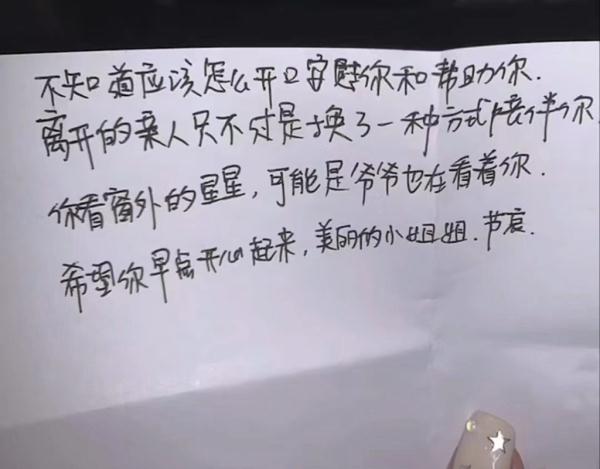 不知道应该怎么开口安慰你和帮助你.
离开的亲人只不过是换了一种方式陪伴你
你看窗外的星星,可能是爷爷也在看着你.
希望你早点开心起来,美丽的小姐姐.节哀.